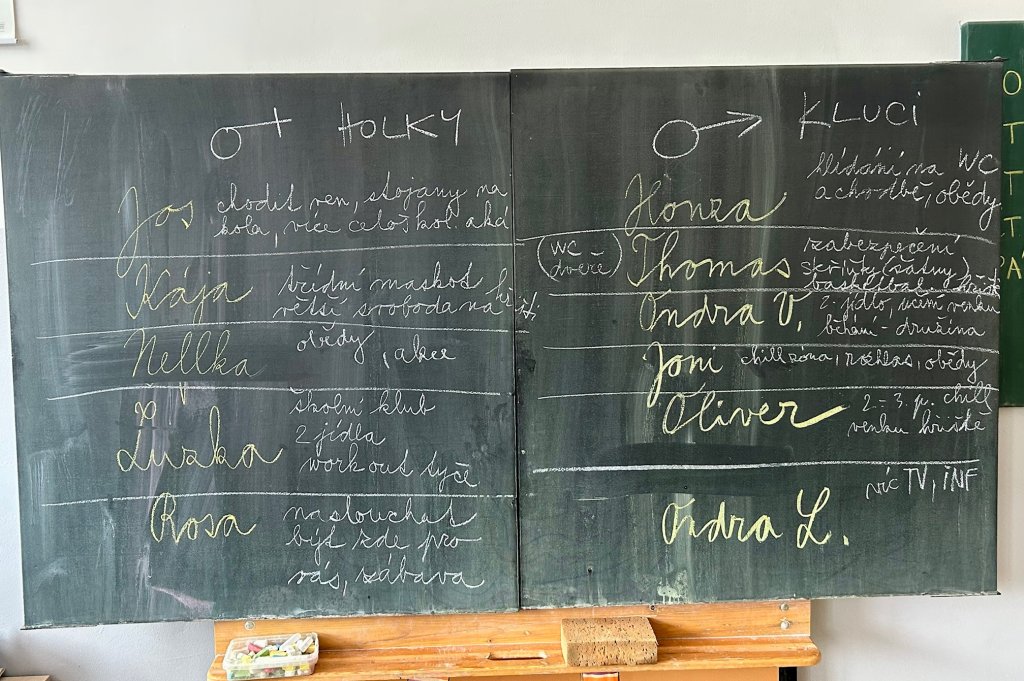 HOLKY
Jos chodit ven, stojany na
kola, více celoškol. akcí
Kája třídní maskot
větší svoboda na hřišti
Nellka obědy, akce
Žužka školní klub
2 jídla
workout tyče
Rosa naslouchat
být zde pro
vás, zábava
KLUCI
Honza hlídání na WC
a chodbě, obědy
(WC
dveře)
Thomas zabezpečení
skříňky (řádny)
basketbal. hřiště
Ondra V. 2. jídlo, učení venku
běhání - družina
Joni chill zóna, rozhlas, obědy
Oliver 2.-3. p. chill
venku hřiště
Ondra L. víc TV, INF
O
T
T
T
PÁ